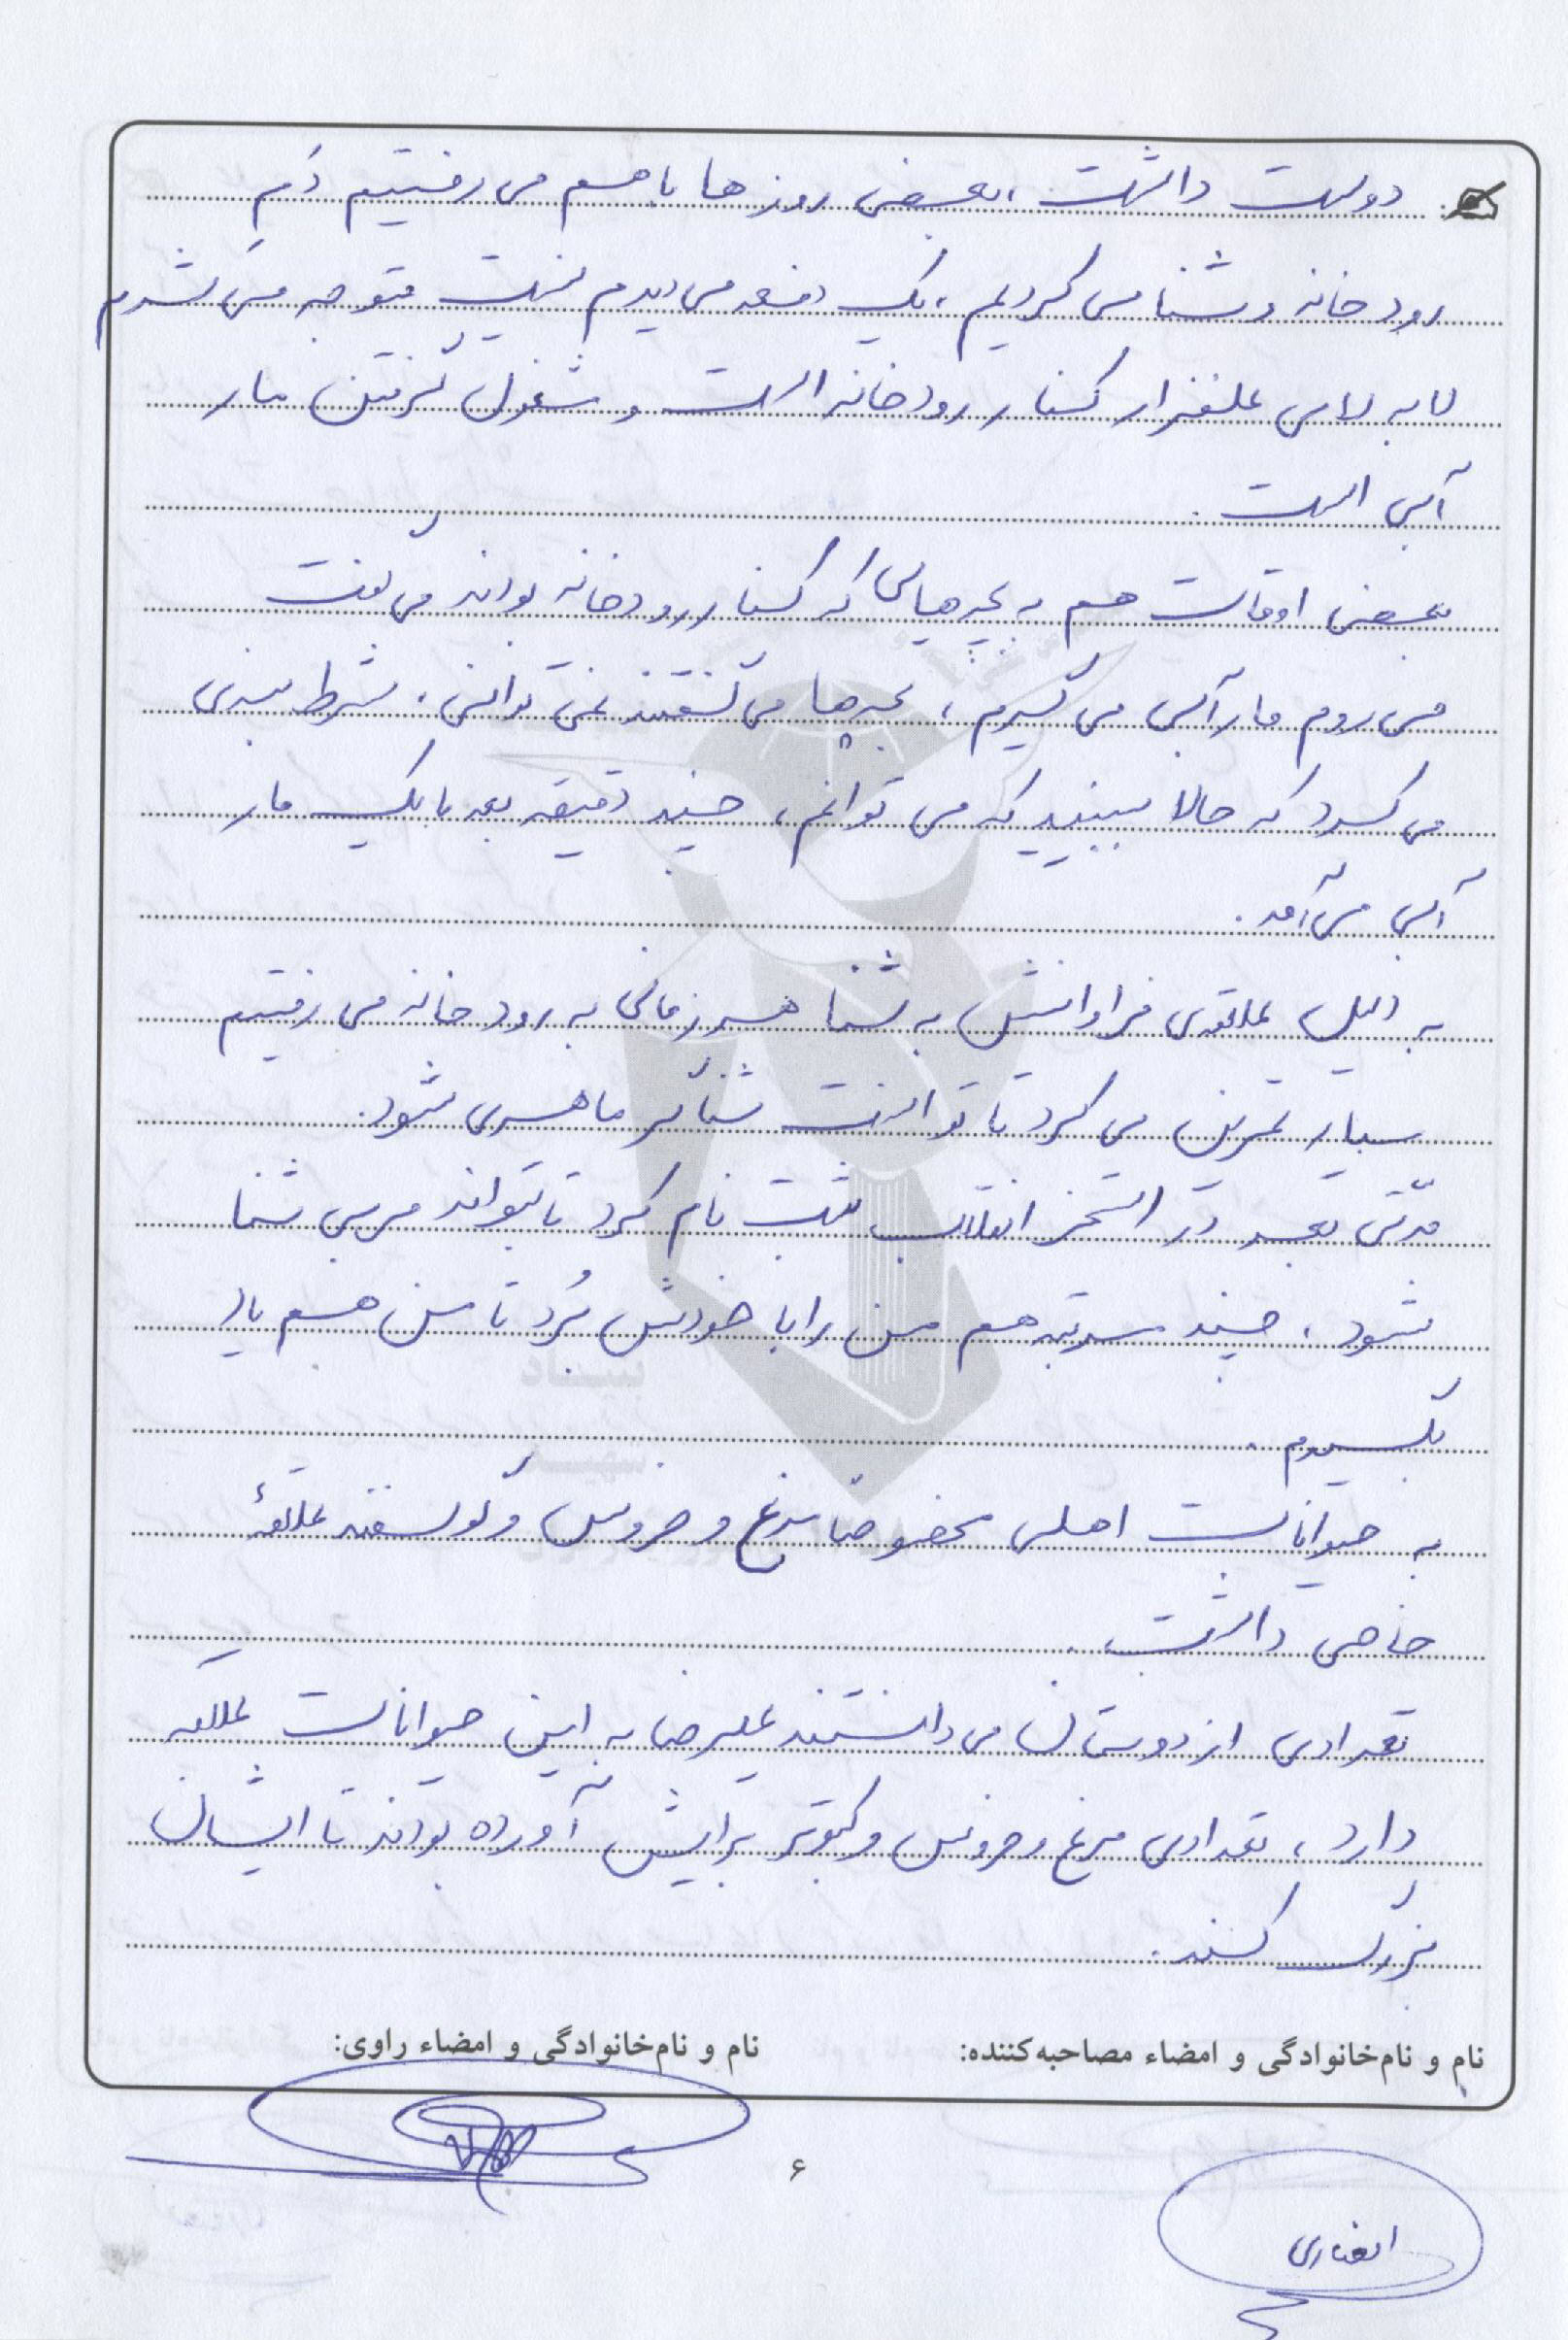 دوست داشت، بعضی روزها با هم می رفتیم دَم
رودخانه و شنا می کردیم، یک دفعه می دیدم نیست متوجه می شدم
لابه لای علفزار کنار رودخانه است و مشغول گرفتن مار
آبی است.
بعضی اوقات هم به بچه هایی که کنار رودخانه بودند می گفت
می روم مار آبی می گیرم، بچه ها می گفتند نمی توانی. شرط بندی
می کرد که حالا ببینید که می توانم، چند دقیقه بعد با یک مار
آبی می آمد.
به دلیل علاقه ی فراوانش به شنا هر زمانی به رودخانه می رفتیم
بسیار تمرین می کرد تا توانست شناگر ماهری شود.
مدّتی بعد در استخر انقلاب ثبت نام کرد تا بتواند مربی شنا
شود، چند مرتبه هم من را با خودش بُرد تا من هم یاد
بگیرم.
به حیوانات اهلی مخصوصا مرغ و خروس و گوسفند علاقهٔ
خاصی داشت.
تعدادی از دوستان می دانستند علیرضا به این حیوانات علاقه
دارد، تعدادی مرغ و خروس و کبوتر برایش آورده بودند تا ایشان
بزرگ کند.
نام و نام‌خانوادگی و امضاء مصاحبه‌کننده: نام و نام‌خانوادگی و امضاء راوی:
۶